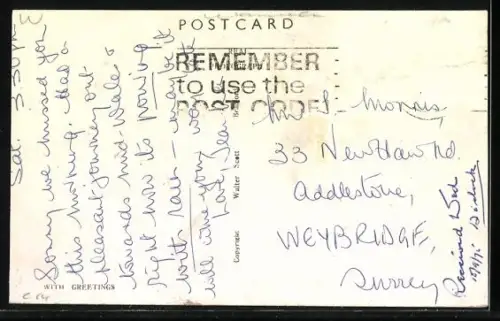 POSTCARD
REAL PHOTOGRAPH
REMEMBER
to use the
POST CODE
Sat. 3.30 pm
Sorry we missed you
this morning. Had a
pleasant journey out
towards mid-Wales &
right now its pouring
with rain – maybe it
will
Love, Jean
WITH GREETINGS
Copyright Walter Scott Bradford
Morris,
33 New Haw Rd.
Addlestone,
WEYBRIDGE,
Surrey
Received Wed